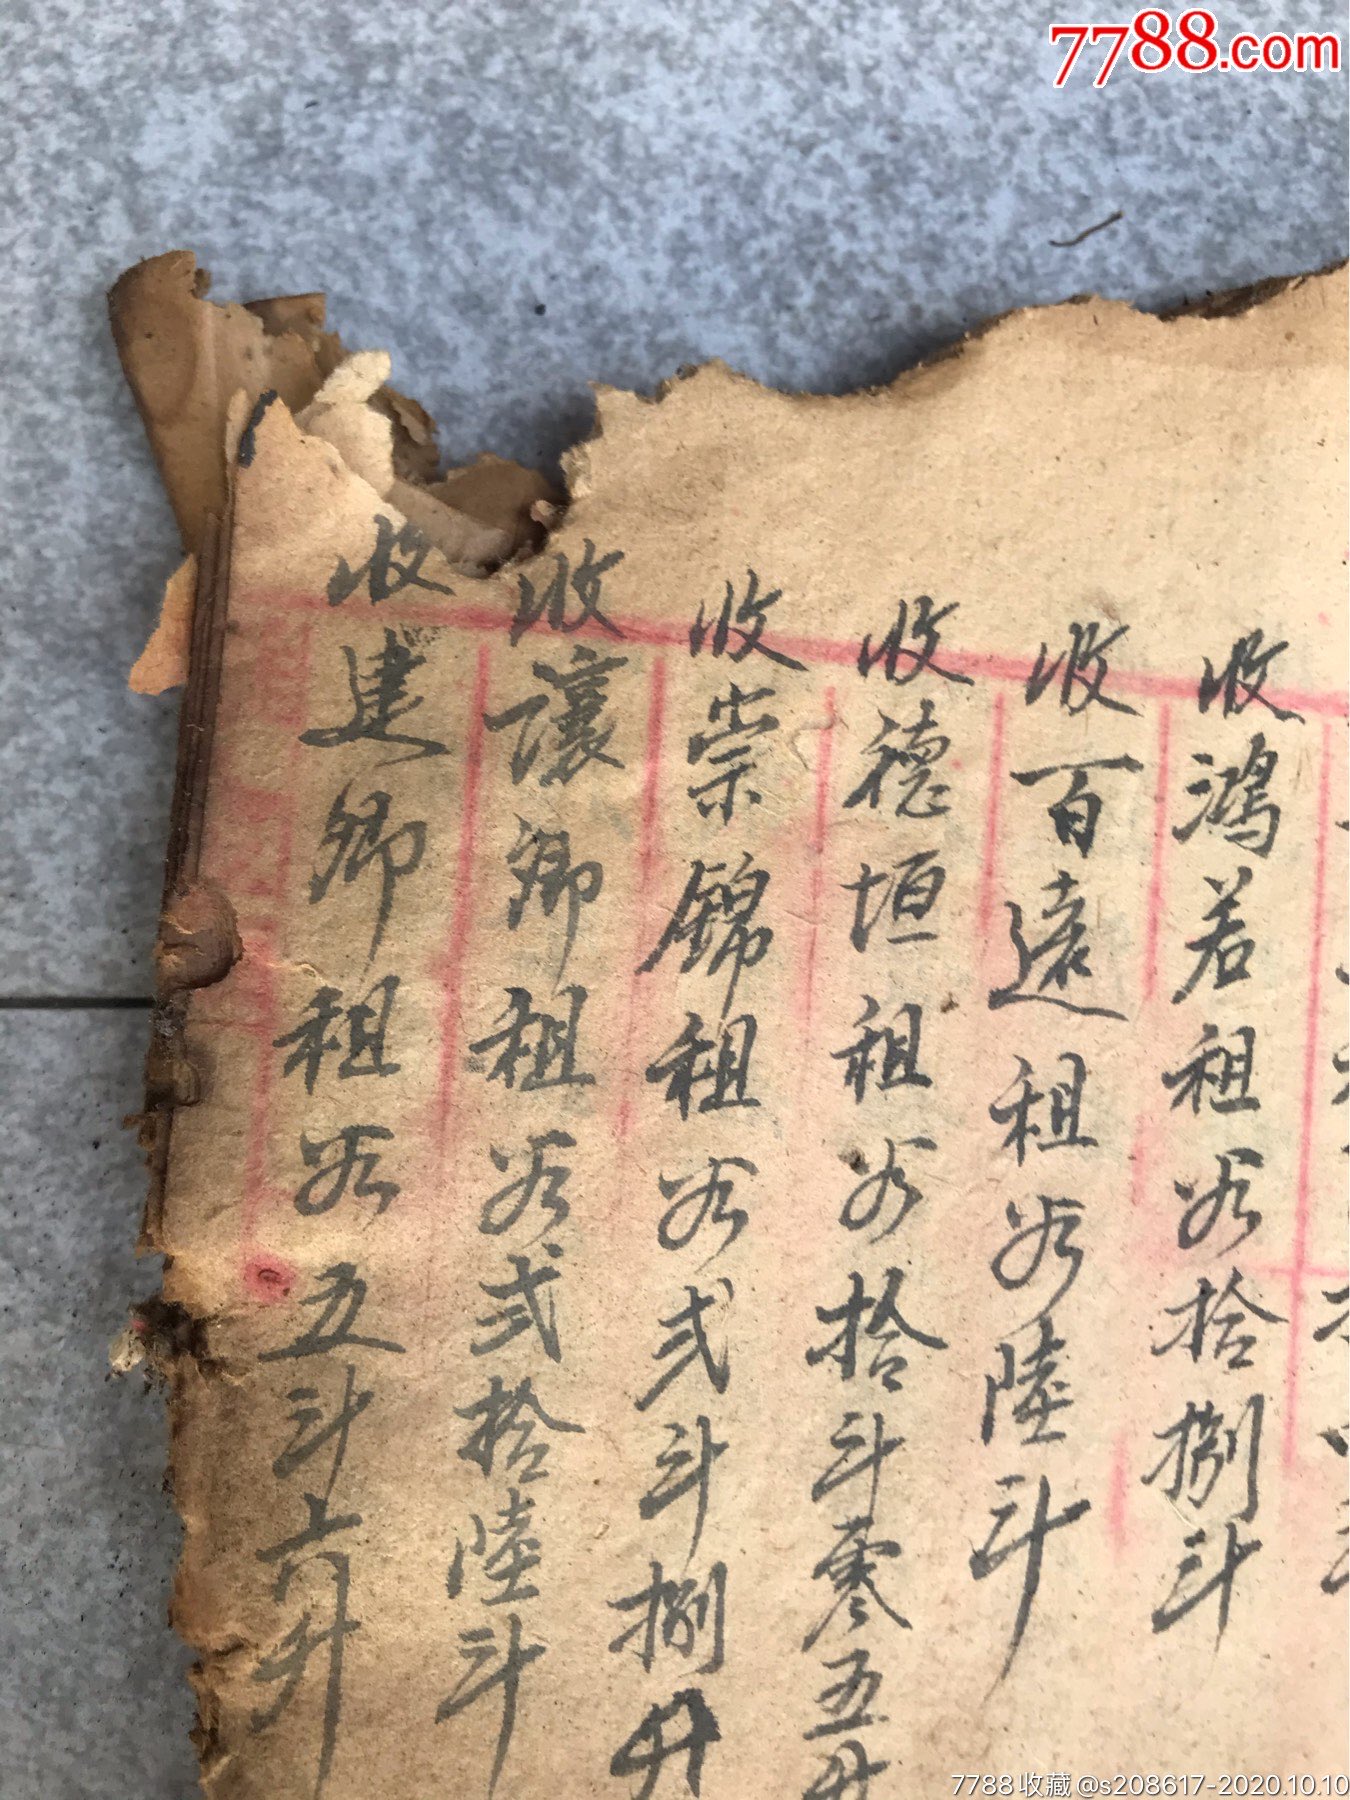 7788.com
收鴻若租谷拾捌斗
收百遠租谷陸斗
收德垣租谷拾斗零五升
收崇錦租谷弍斗捌升
收讓卿租谷弍拾陸斗
收建卿租谷五斗六升
7788收藏@s208617-2020.10.10